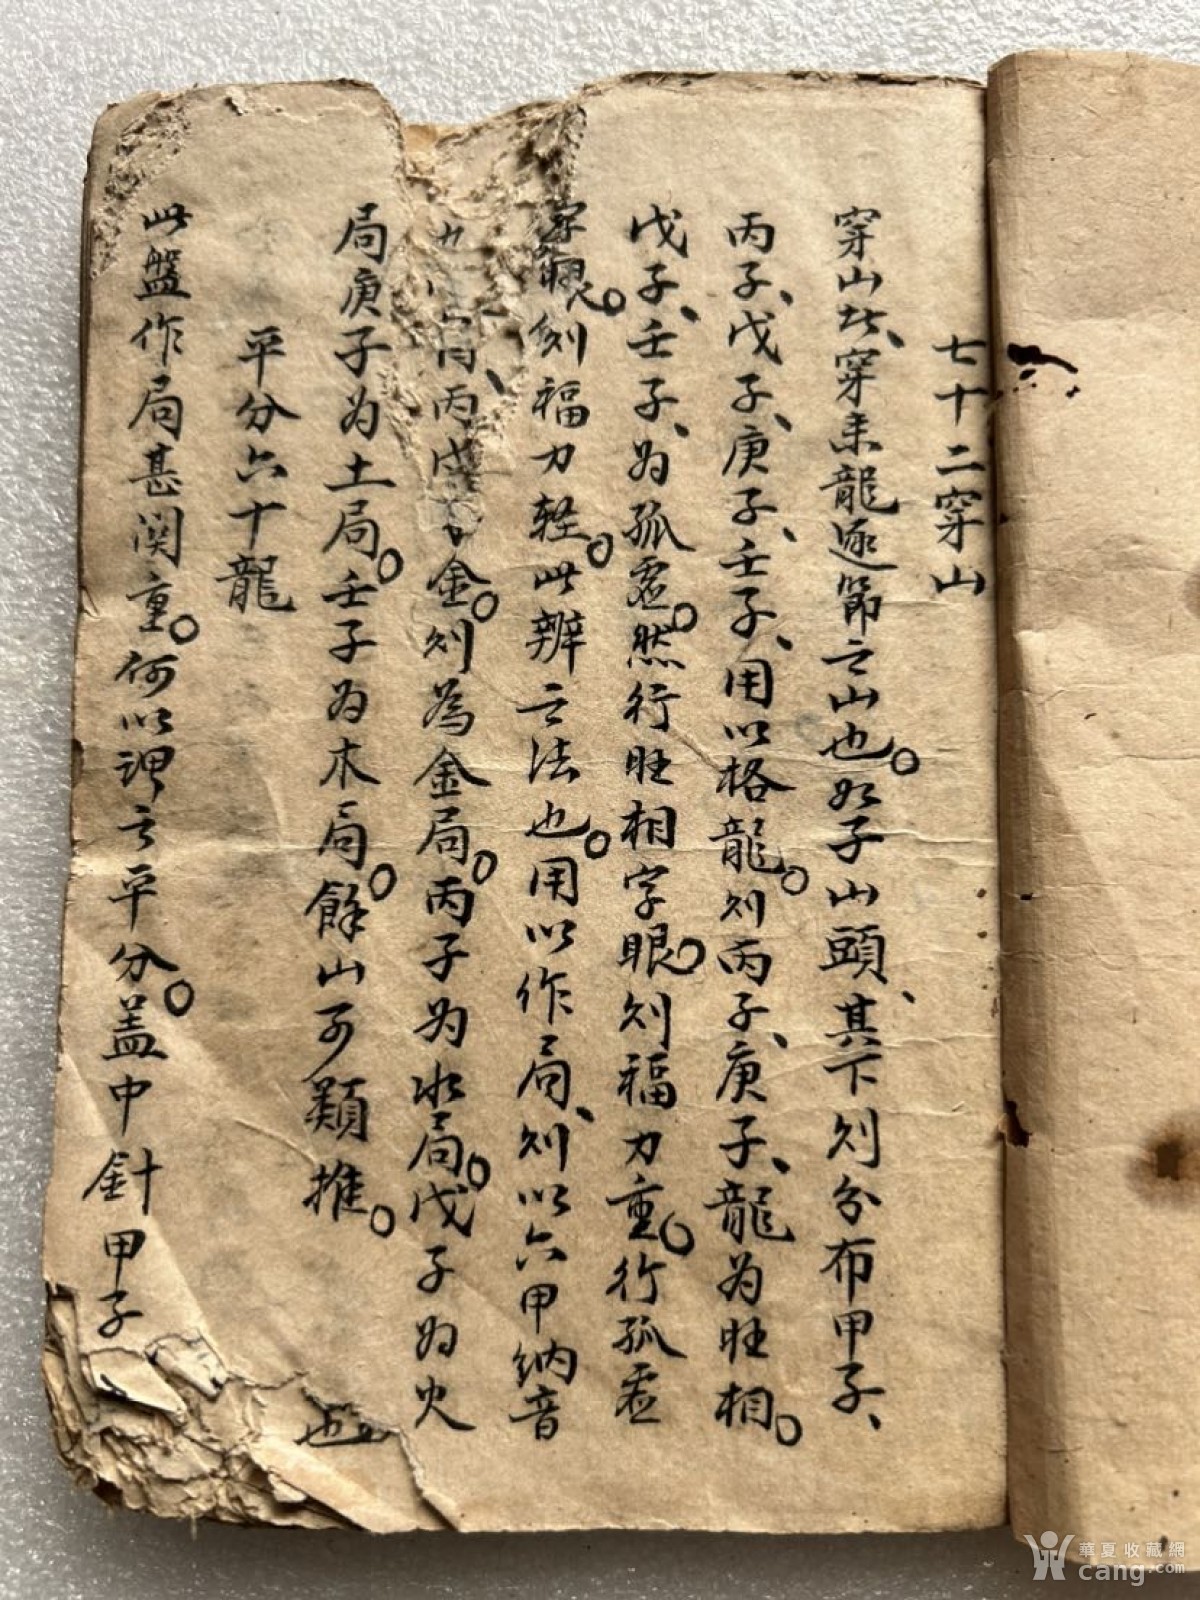 七十二穿山
穿山者、穿来龍逐節之山也。如子山頭、其下則分布甲子、
丙子、戊子、庚子、壬子、用以格龍。則丙子、庚子、龍为旺相。
戊子、壬子、为孤虚。然行旺相字眼。則福力重。行孤虚
字眼。則福力軽。此辨之法也。用以作局、則以六甲納音
丙、丙戌 金。則為金局。丙子为水局。戊子为火
局庚子为土局。壬子为木局。餘山可類推。
平分六十龍
此盤作局甚関重。何以謂之平分。盖中針甲子
也
華夏收藏網
cang.com